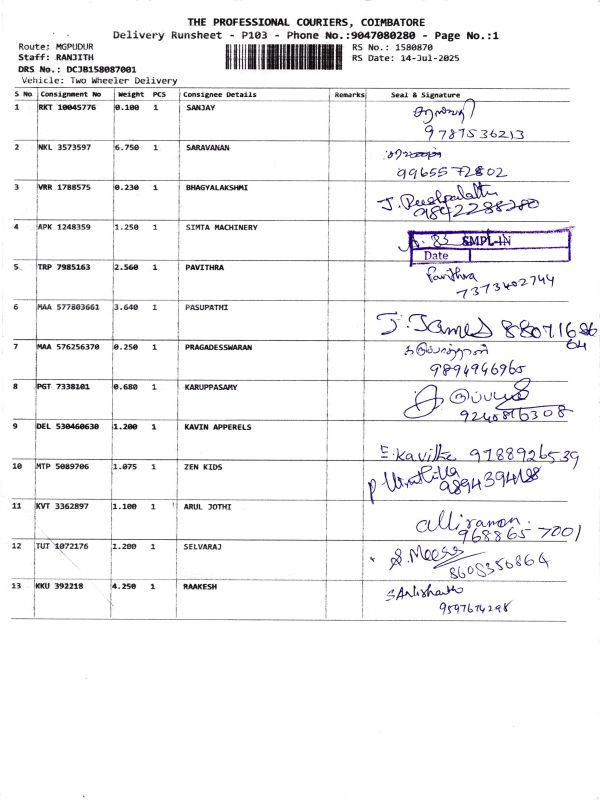 THE PROFESSIONAL COURIERS, COIMBATORE
Delivery Runsheet - P103 - Phone No.:9047080280 - Page No.:1
Route: MGPUDUR RS No.: 1580870
Staff: RANJITH RS Date: 14-Jul-2025
DRS No.: DCJB158087001
Vehicle: Two Wheeler Delivery
S No Consignment No Weight PCS Consignee Details Remarks Seal & Signature
1 RKT 10045776 0.100 1 SANJAY
9787536213
2 NKL 3573597 6.750 1 SARAVANAN
9965572802
3 VRR 1788575 0.230 1 BHAGYALAKSHMI
9842288280
4 APK 1248359 1.250 1 SIMTA MACHINERY
SMPL-IN
Date
5 TRP 7985163 2.560 1 PAVITHRA
Pavithra
7373402744
6 MAA 577803661 3.640 1 PASUPATHI
J. James
7 MAA 576256370 0.250 1 PRAGADESSWARAN
9894946965
8 PGT 7338101 0.680 1 KARUPPASAMY
9 DEL 530460630 1.200 1 KAVIN APPERELS
E. Kavitha 9788926539
10 MTP 5089706 1.075 1 ZEN KIDS
11 KVT 3362897 1.100 1 ARUL JOTHI
968865 7001
12 TUT 1072176 1.200 1 SELVARAJ
8608356864
13 KKU 392218 4.250 1 RAAKESH
9597674298